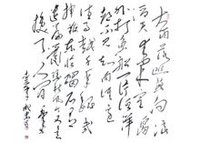 大雨落幽燕白浪
滔天秦皇岛
外打鱼船一片汪洋
都不见知向谁边
往事越千年魏武
挥鞭东临碣石有
遗篇萧瑟秋风今又是
换了人间